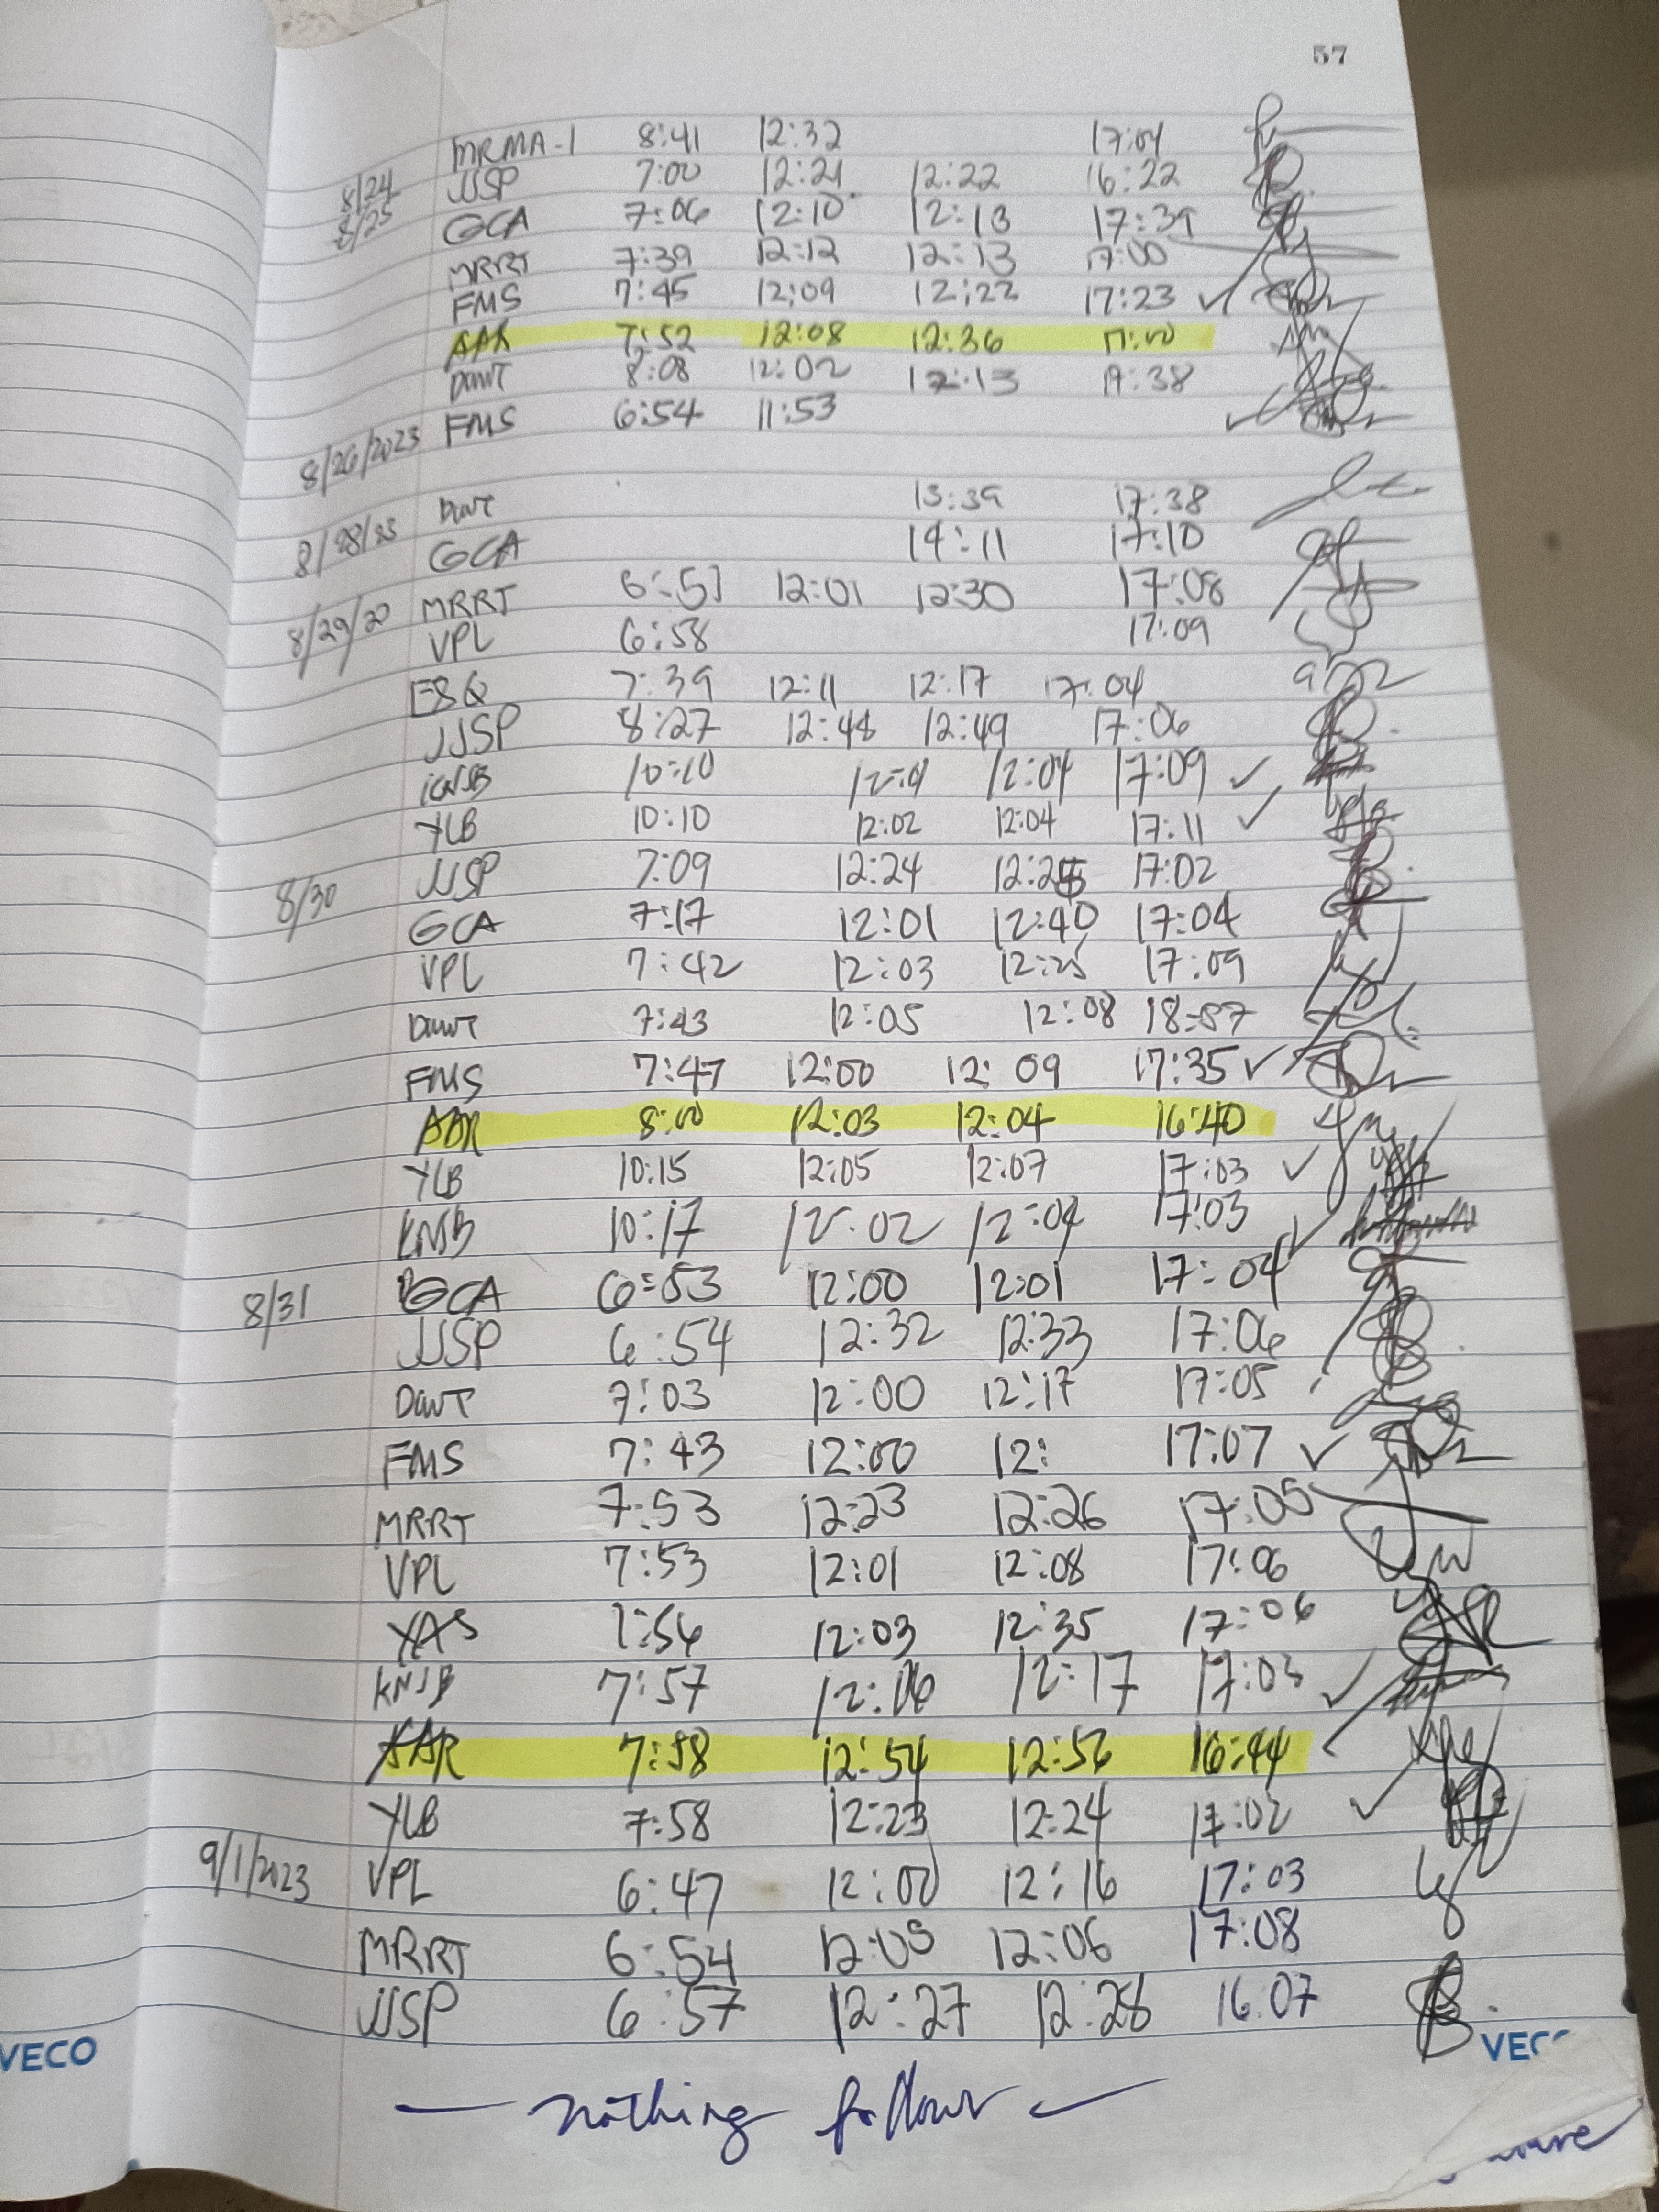 57
MRMA-1 8:41 12:32 17:04
8/24 JJSP 7:00 12:21 12:22 16:22
8/25 GCA 7:06 12:10 12:13 17:39
MRRT 7:39 12:12 12:13 17:00
FMS 7:45 12:09 12:22 17:23 ✓
AAR 7:52 12:08 12:36 17:00
DWT 8:08 12:02 12:13 17:38
8/26/2023 FMS 6:54 11:53 ✓
DWT 13:39 17:38
8/28/23 GCA 14:11 17:10
MRRT 6:51 12:01 12:30 17:08
8/29/20 VPL 6:58 17:09
ESQ 7:39 12:11 12:17 17:04
JJSP 8:27 12:48 12:49 17:06
10:10 12:01 12:04 17:09 ✓
YLB 10:10 12:02 12:04 17:11 ✓
8/30 JJSP 7:09 12:24 17:02
GCA 7:17 12:01 12:40 17:04
VPL 7:42 12:03 12:25 17:09
DWT 7:43 12:05 12:08 18:57
FMS 7:47 12:00 12:09 17:35 ✓
AAR 8:00 12:03 12:04 16:40
YLB 10:15 12:05 12:07 17:03 ✓
KNSB 10:17 12:02 12:04 17:03 ✓
8/31 GCA 6:53 12:00 12:01 17:04
JJSP 6:54 12:32 12:33 17:06
DWT 7:03 12:00 12:17 17:05
FMS 7:43 12:00 12: 17:07 ✓
MRRT 7:53 12:23 12:26 17:05
VPL 7:53 12:01 12:08 17:06
YAS 7:56 12:03 12:35 17:06
KNJB 7:57 12:16 12:17 17:03 ✓
AAR 7:58 12:54 12:56 16:44
YLB 7:58 12:23 12:24 17:02 ✓
9/1/2023 VPL 6:47 12:00 12:16 17:03
MRRT 6:54 12:05 12:06 17:08
JJSP 6:57 12:27 12:28 16:07
VECO
VECO
— nothing follows —